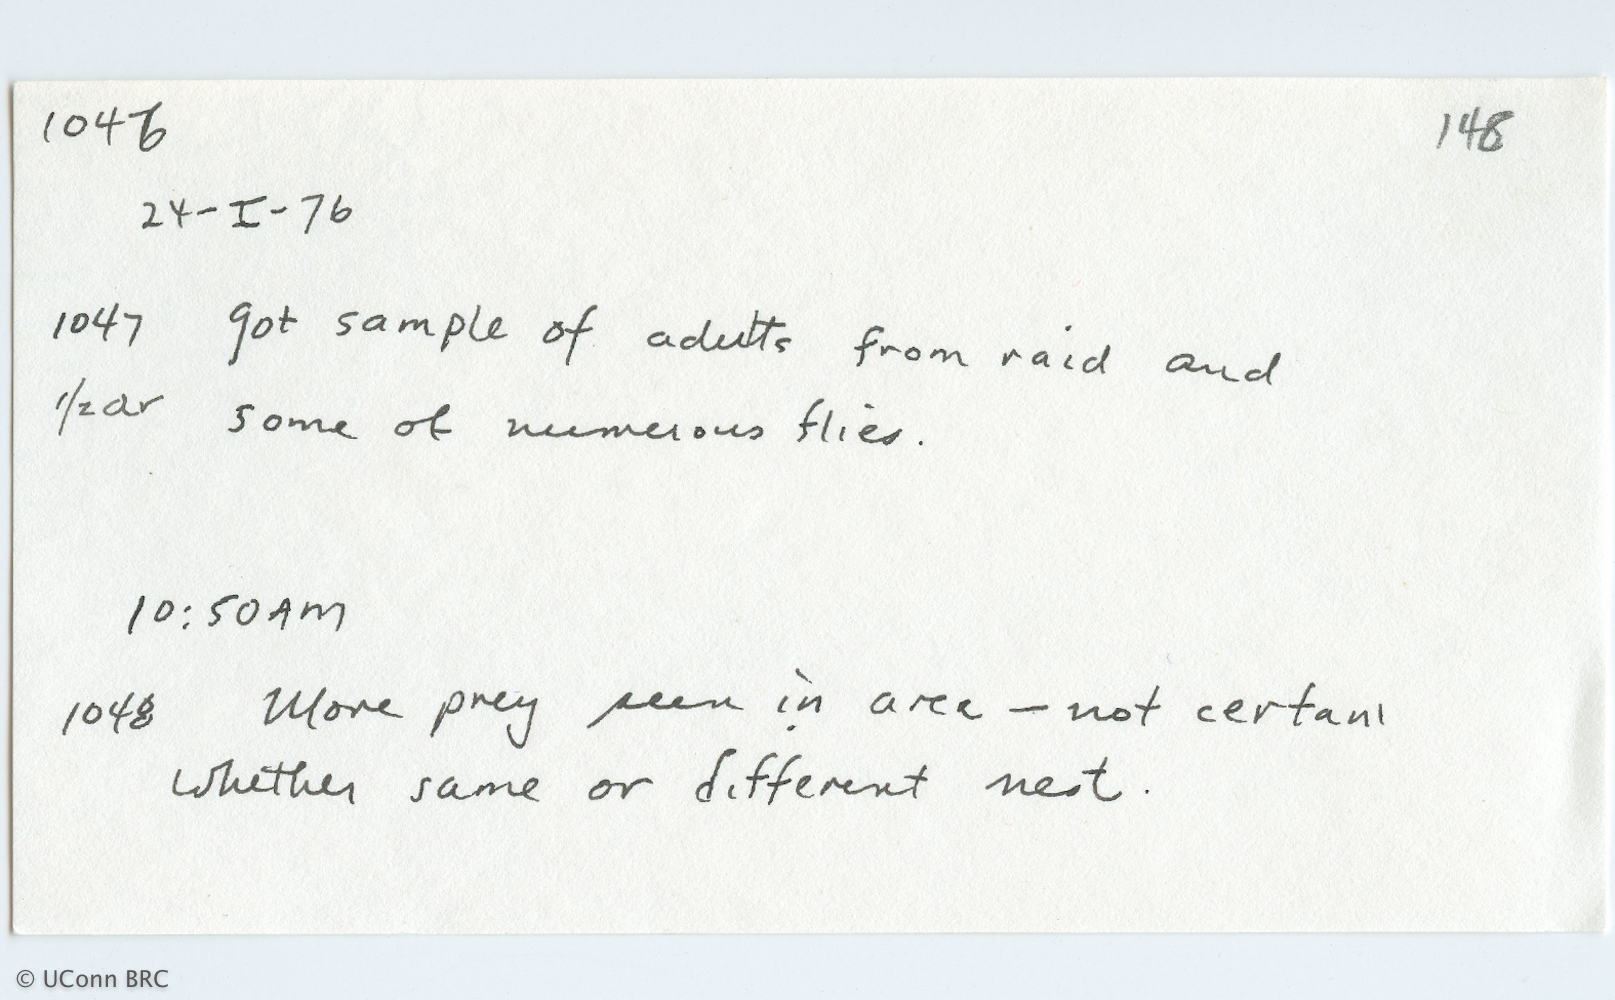 1046 148
24-I-76
1047 got sample of adults from raid and
1/2 ar some of numerous flies.
10:50AM
1048 More prey seen in area - not certain
whether same or different nest.
© UConn BRC